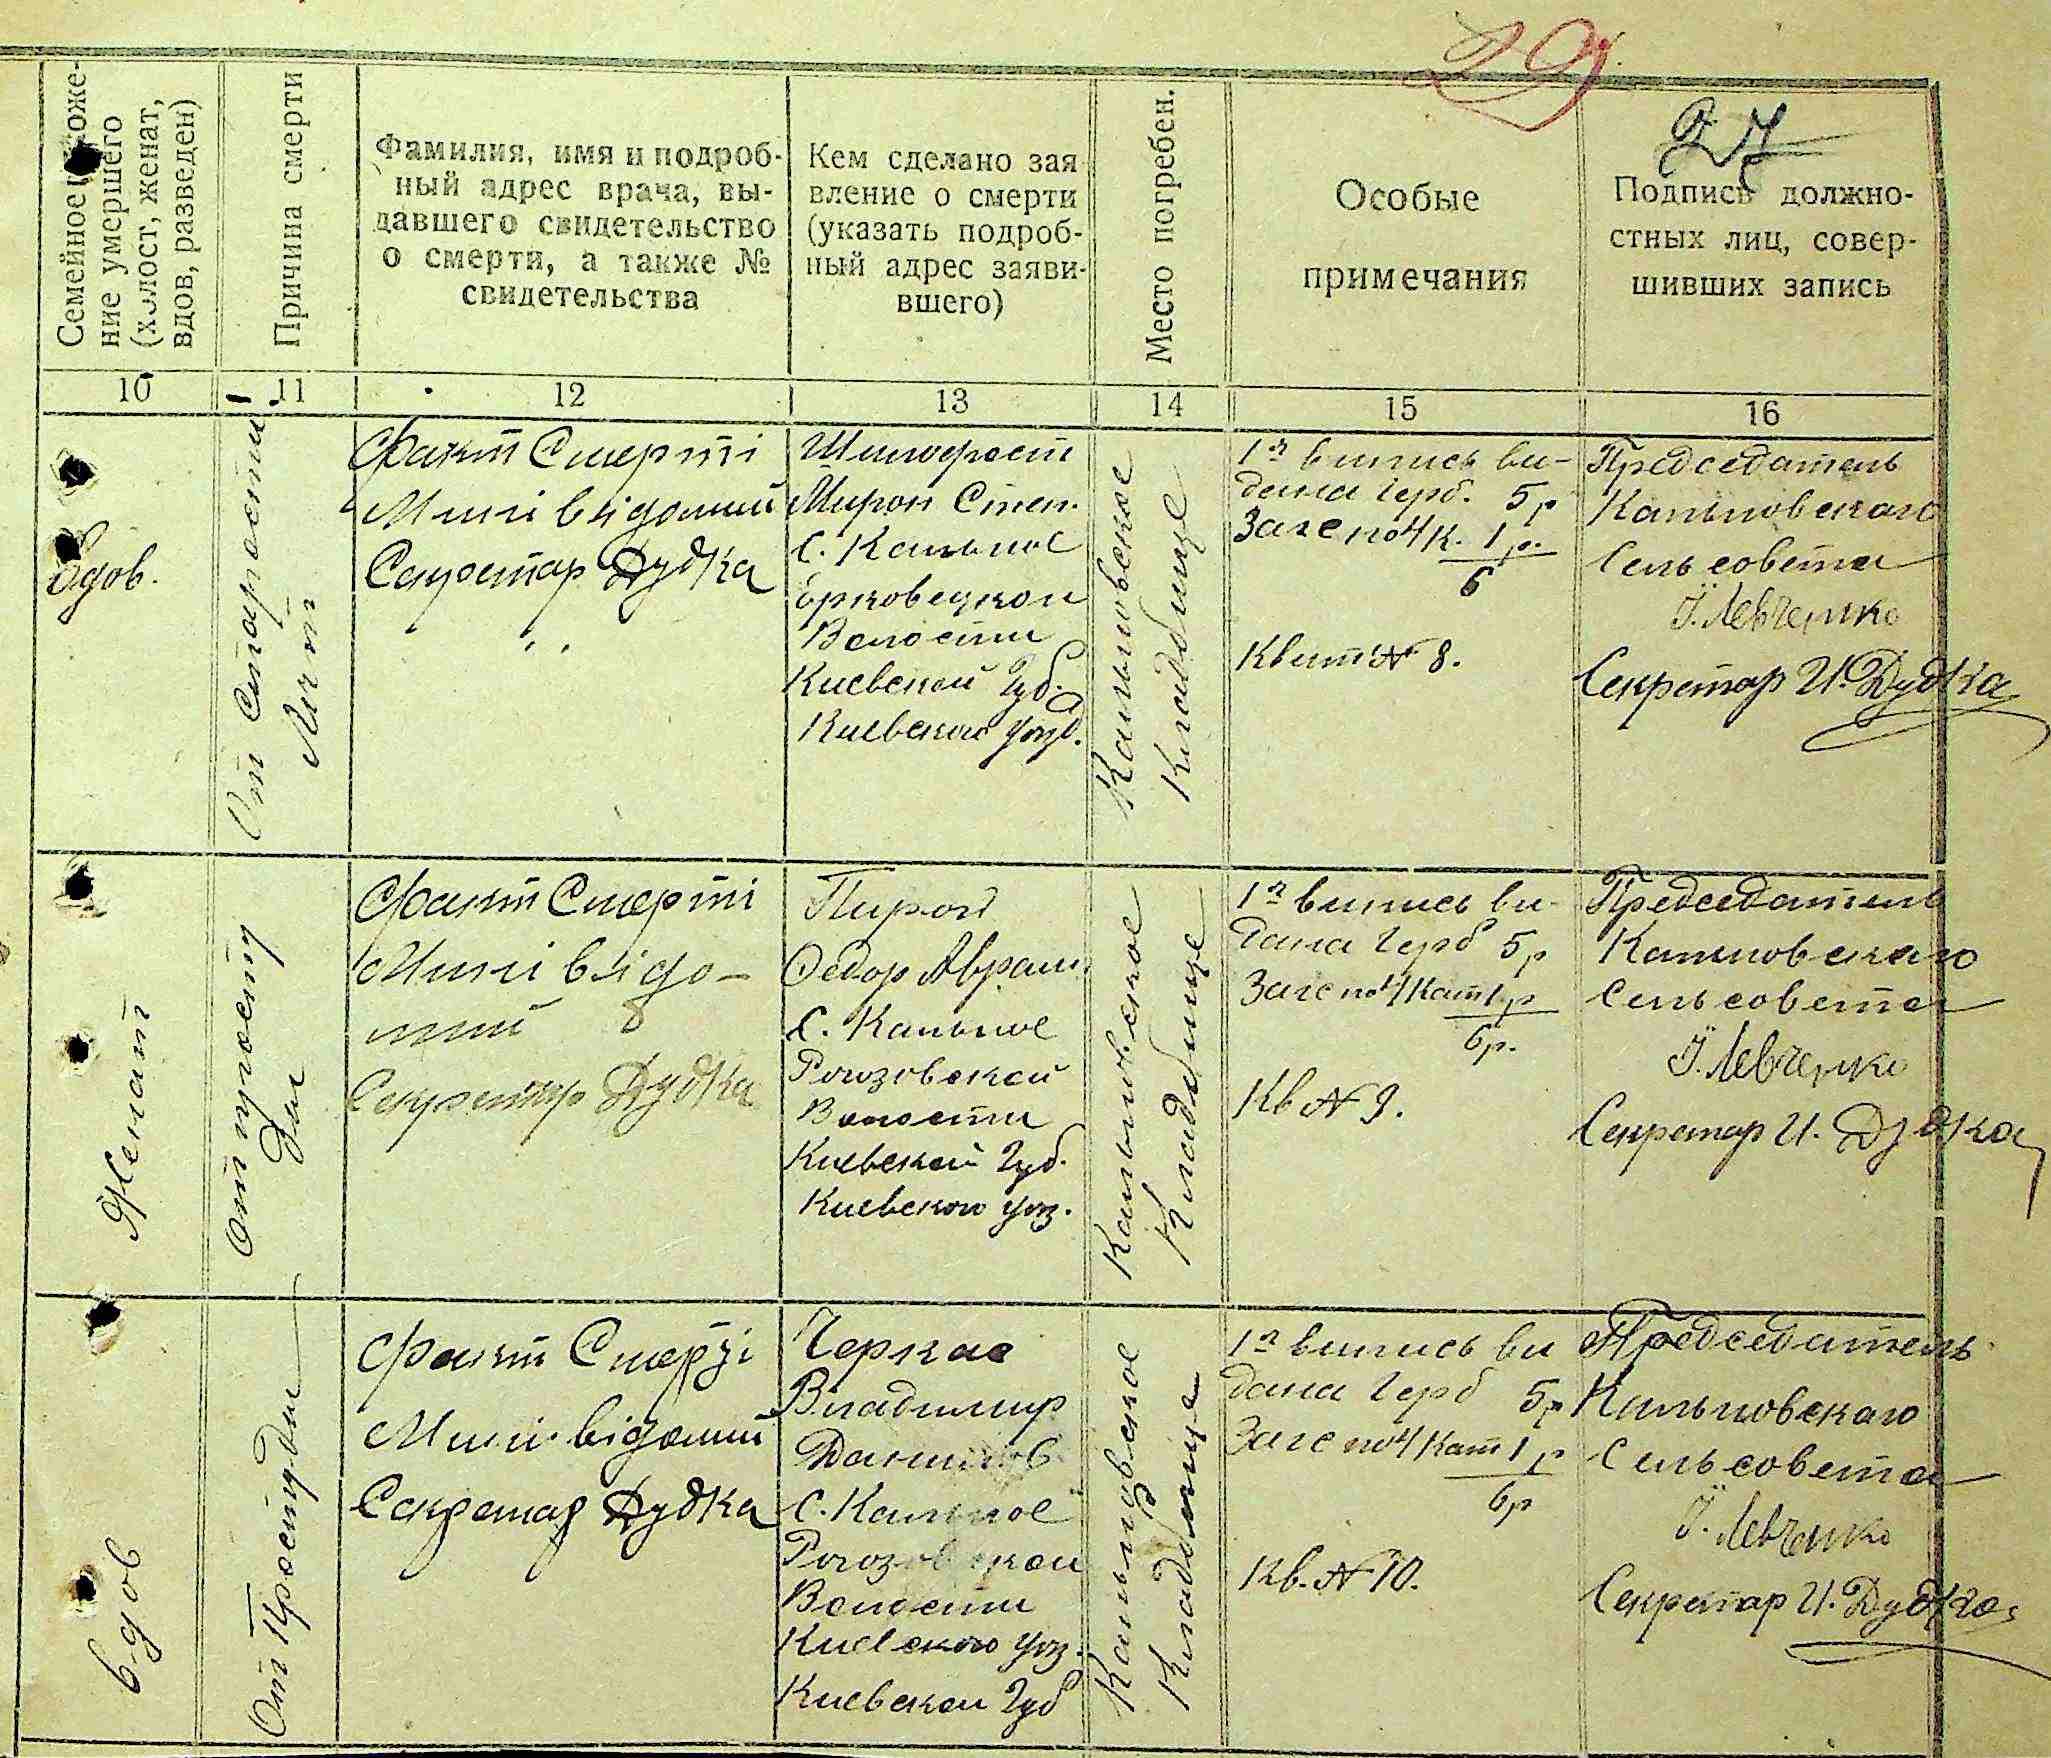 29.
27
Семейное положе-
ние умершего
(холост, женат,
вдов, разведен)
Причина смерти
Фамилия, имя и подроб-
ный адрес врача, вы-
давшего свидетельство
о смерти, а также №
свидетельства
Кем сделано зая
вление о смерти
(указать подроб-
ный адрес заяви-
вшего)
Место погребен.
Особые
примечания
Подпись должно-
стных лиц, совер-
шивших запись
10
11
12
13
14
15
16
Вдов.
От старости
Лет
Факт Смерті
Мині відомий
Секретар Дудка
Мирон Степ.
с. Кальное
Волости
Киевской Губ.
Киевского уезд.
Кальновское
Кладбище
1я випись ви-
дана Герб. 5р
Загс по 4 к. 1р.
6
Квит № 8.
Председатель
Кальновского
Сельсовета
Й. Левченко
Секретар И. Дудка
Женат
От
Факт Смерті
Мині відо-
мий
Секретар Дудка
Федор Аврам.
с. Кальное
Рогозовской
Волости
Киевской Губ.
Киевского уез.
Кальновское
Кладбище
1я випись ви-
дана Герб 5р
Загс по 4 Кат 1р
6р.
Кв № 9.
Председатель
Кальновского
Сельсовета
Й. Левченко
Секретар И. Дудка
Вдов
От Простуды
Факт Смерті
Мині відомий
Секретар Дудка
Черкас
Владимир
Данилов
с. Кальное
Рогозовской
Волости
Киевского уез.
Киевской Губ
Кальновское
Кладбище
1я випись ви
дана Герб 5р
Загс по 4 Кат 1р
6р
Кв. № 10.
Председатель
Кальновского
Сельсовета
Й. Левченко
Секретар И. Дудка